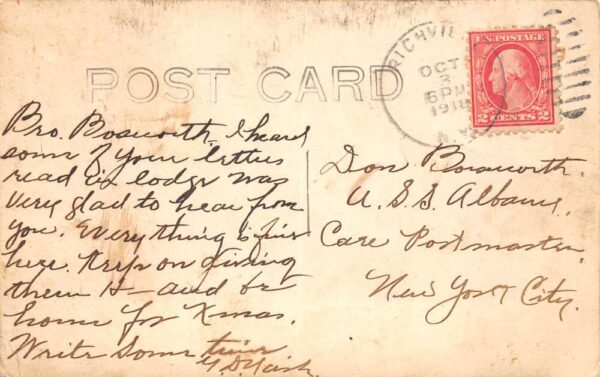 POST CARD
RICHVILLE
OCT
3
6 PM
1918
N.Y.
U.S. POSTAGE
2 CENTS 2
Bro. Bosworth, I heard
some of your letters
read in lodge was
very glad to hear from
you. Everything is fine
here. Keep on giving
them H— and be
home for Xmas.
Write some time
Don Bosworth.
U.S.S. Albany,
Care Postmaster
New York City.